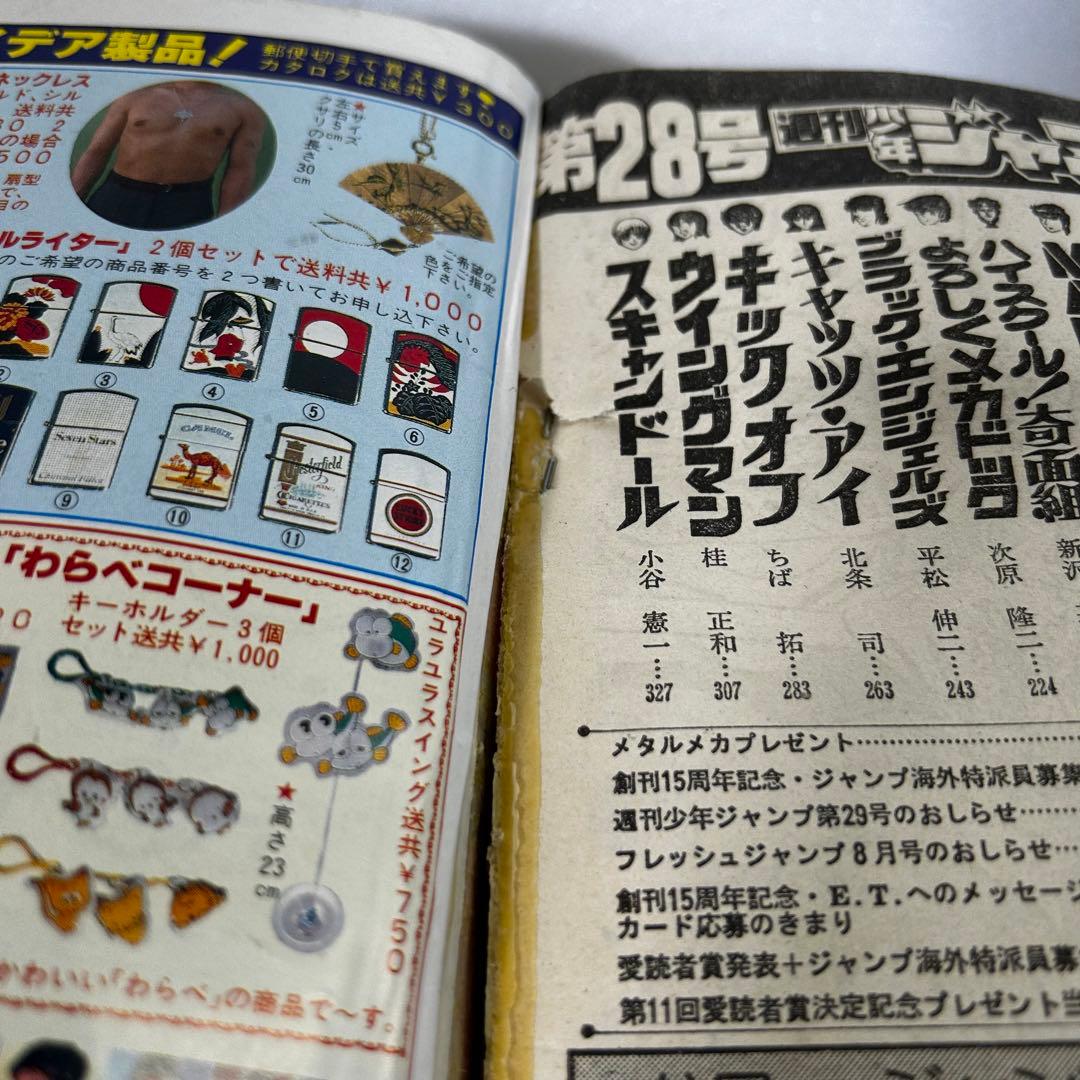 デア製品!
郵便切手で買えます
カタログは送共¥300
ネックレス
ルド、シル
送料共
の場合
500
扇型
で、
目の
★サイズ
左右5cm・
クサリの長さ30cm
ご希望の
色をご指定
下さい。
ルライター』2個セットで送料共¥1,000
のご希望の商品番号を2つ書いてお申し込下さい。
③
④
⑤
⑥
Seven Stars
⑨
⑩
Chesterfield
CIGARETTES
⑪
LUCKY STRIKE
⑫
「わらべコーナー」
キーホルダー3個
セット送共¥1,000
ユラユラスイング送共¥750
★高さ23cm
かわいい「わらべ」の商品で〜す。
第28号
週刊少年ジャン
ハイスクール!奇面組
新沢
よろしくメカドック
次原隆二…224
ブラック・エンジェルズ
平松伸二…243
キャッツ・アイ
北条司…263
キックオフ
ちば拓…283
ウイングマン
桂正和…307
スキャンドール
小谷憲一…327
メタルメカプレゼント……………
創刊15周年記念・ジャンプ海外特派員募集
週刊少年ジャンプ第29号のおしらせ……
フレッシュジャンプ8月号のおしらせ…
創刊15周年記念・E.T.へのメッセージ
カード応募のきまり
愛読者賞発表+ジャンプ海外特派員募
第11回愛読者賞決定記念プレゼント当